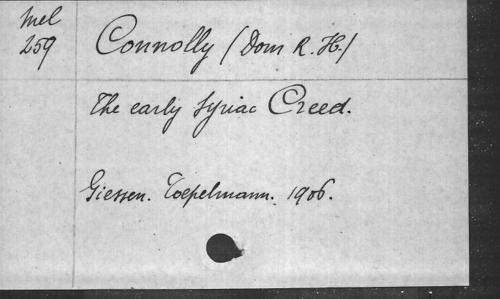 Mel
259
Connolly (Dom R. H.)
The early Syriac Creed.
Giessen. Toepelmann. 1906.